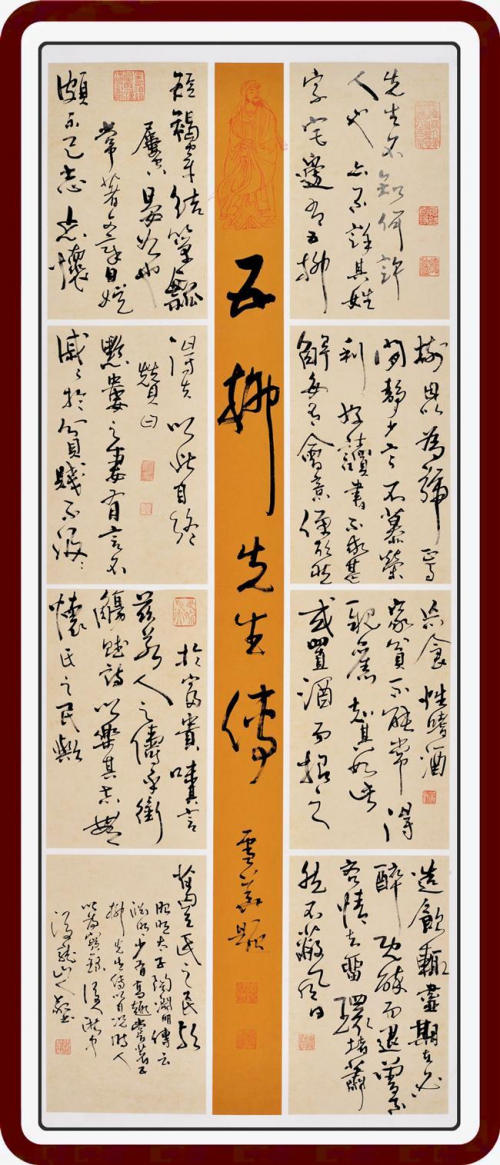 五柳先生傳
題
先生不知何許
人也亦不詳其姓
字宅邊有五柳
樹因以為號焉
閑靜少言不慕榮
利好讀書不求甚
解每有會意便欣然
忘食性嗜酒
家貧不能常得
親舊知其如此
或置酒而招之
造飲輒盡期在必
醉既醉而退曾不
吝情去留環堵蕭
然不蔽風日
短褐穿結簞瓢
屢空晏如也
常著文章自娱
頗示己志忘懷
得失以此自終
贊曰
黔婁之妻有言不
戚々於貧賤不汲々
於富貴味其言
茲若人之儔乎銜
觴賦詩以樂其志無
懷氏之民歟
葛天氏之民歟
昭明太子陶淵明傳云
淵明少有高趣嘗著五
柳先生傳以自况時人
以為實錄